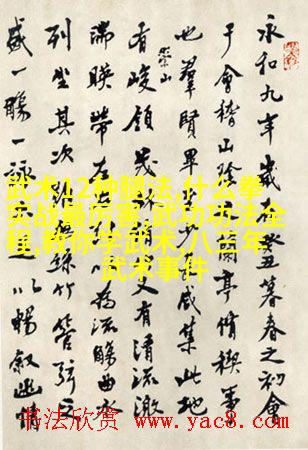 永和九年歲在癸丑暮春之初會
于會稽山陰蘭亭脩稧事
也羣賢畢咸集此地
有崇山峻領茂又有清流激
湍暎帶左以為流觴曲水
列坐其次絲竹管弦之
盛一觴一詠以暢敘幽情
武术12种腿法,什么拳
实战最厉害,武功功法全
程,教你学武术,八三年
武术事件
书法欣赏 www.yac8.com